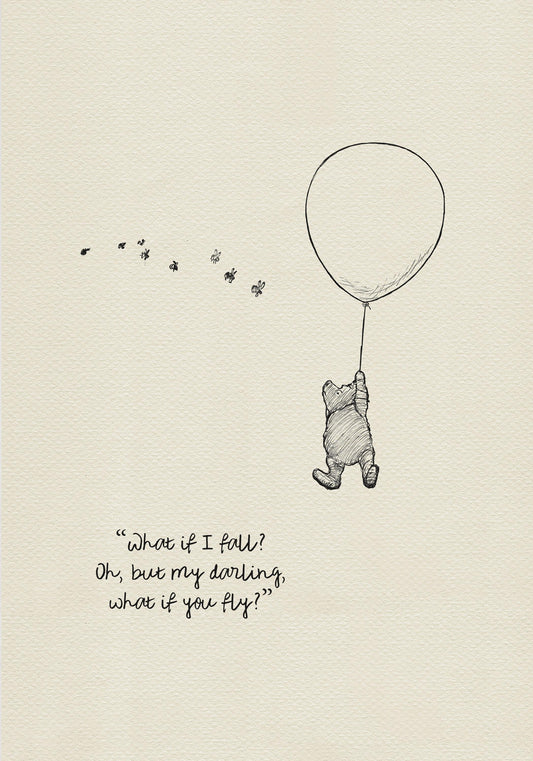 “What if I fall?
Oh, but my darling,
what if you fly?”